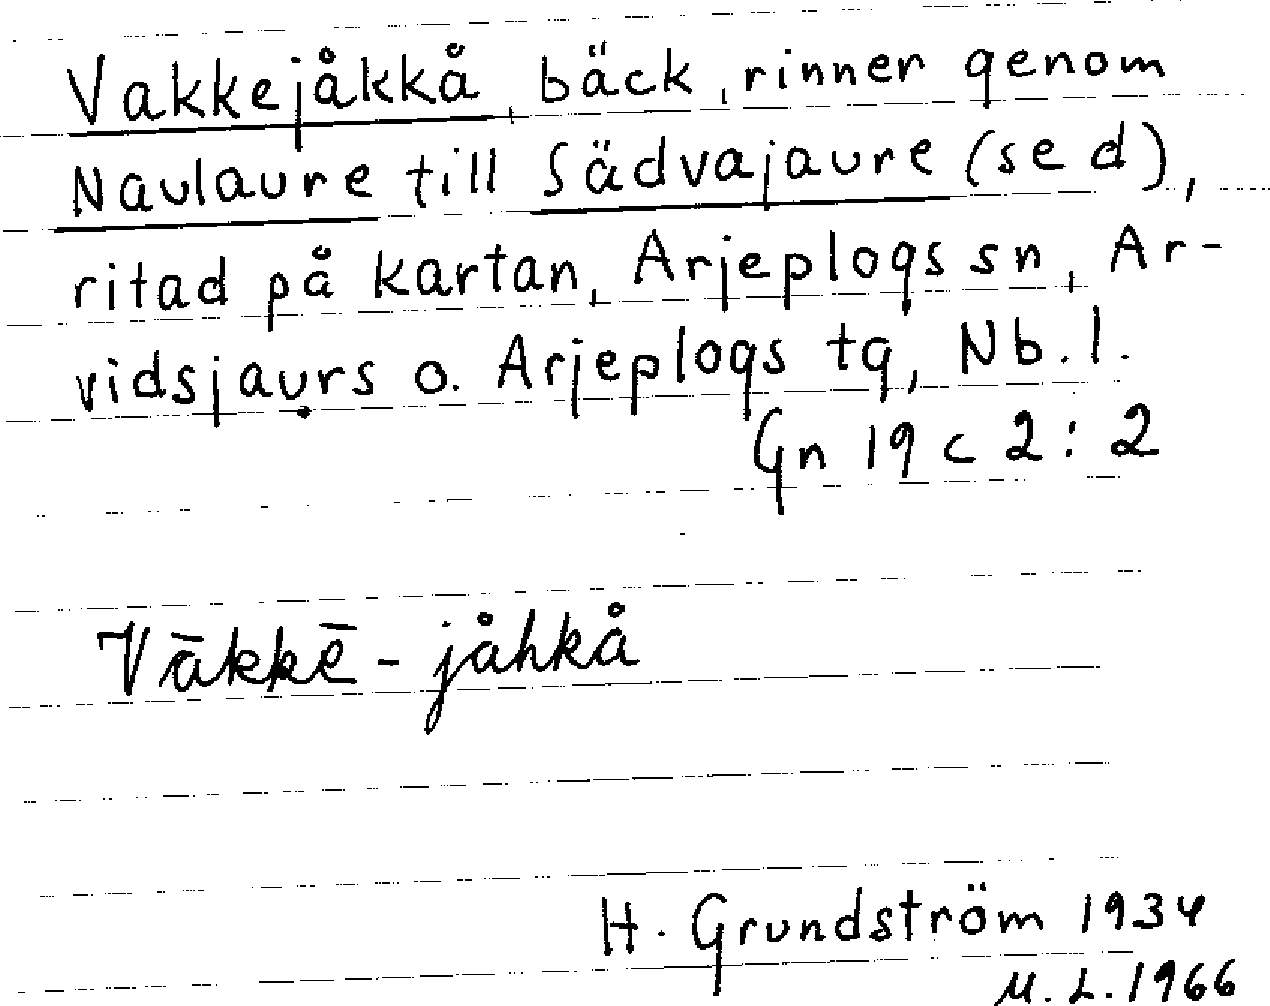 Vakkejåkkå, bäck, rinner genom
Naulaure till Sädvajaure (se d),
ritad på kartan, Arjeplogs sn, Ar-
vidsjaurs o. Arjeplogs tg, Nb.l.
Gn 19 c 2:2
Vākkē-jåhkå
H. Grundström 1934
M.L.1966